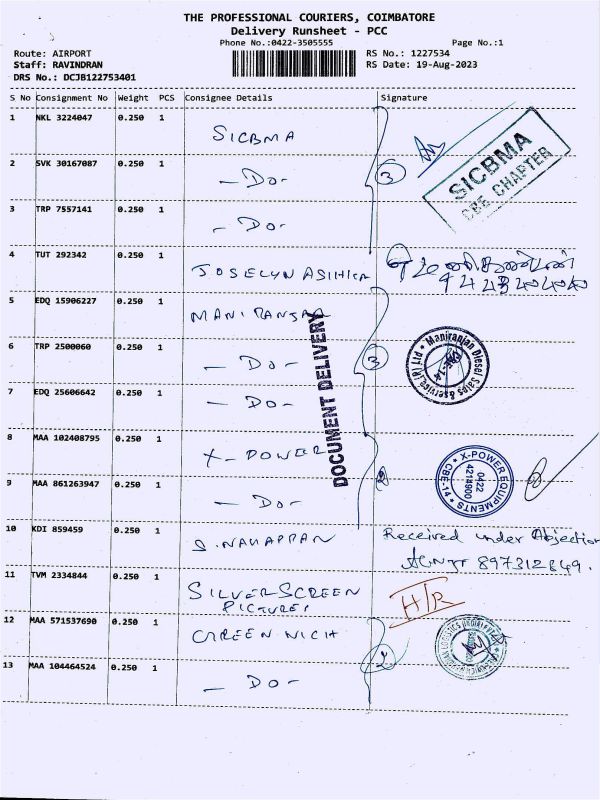 THE PROFESSIONAL COURIERS, COIMBATORE
Delivery Runsheet - PCC
Phone No.:0422-3505555 Page No.:1
Route: AIRPORT RS No.: 1227534
Staff: RAVINDRAN RS Date: 19-Aug-2023
DRS No.: DCJB122753401
S No Consignment No Weight PCS Consignee Details Signature
1 NKL 3224047 0.250 1
SICBMA
SICBMA
CBE CHAPTER
2 SVK 30167087 0.250 1
- Do - 3
3 TRP 7557141 0.250 1
- Do -
4 TUT 292342 0.250 1
JOSELYN ASIHIKA
5 EDQ 15906227 0.250 1
MANIRANJAN
6 TRP 2500060 0.250 1
- Do - 3
Maniranjan Diesel Sales &Service (P) Ltd
7 EDQ 25606642 0.250 1
- Do -
DOCUMENT DELIVERY
8 MAA 102408795 0.250 1
X-POWER
X-POWER EQUIPMENTS
CBE-14
0422
4214900
9 MAA 861263947 0.250 1
- Do - 2
10 KDI 859459 0.250 1
Received under Abjection
897312849.
11 TVM 2334844 0.250 1
SILVER SCREEN
PICTURES
H/R
12 MAA 571537690 0.250 1
GREEN NICH
13 MAA 104464524 0.250 1
- Do -